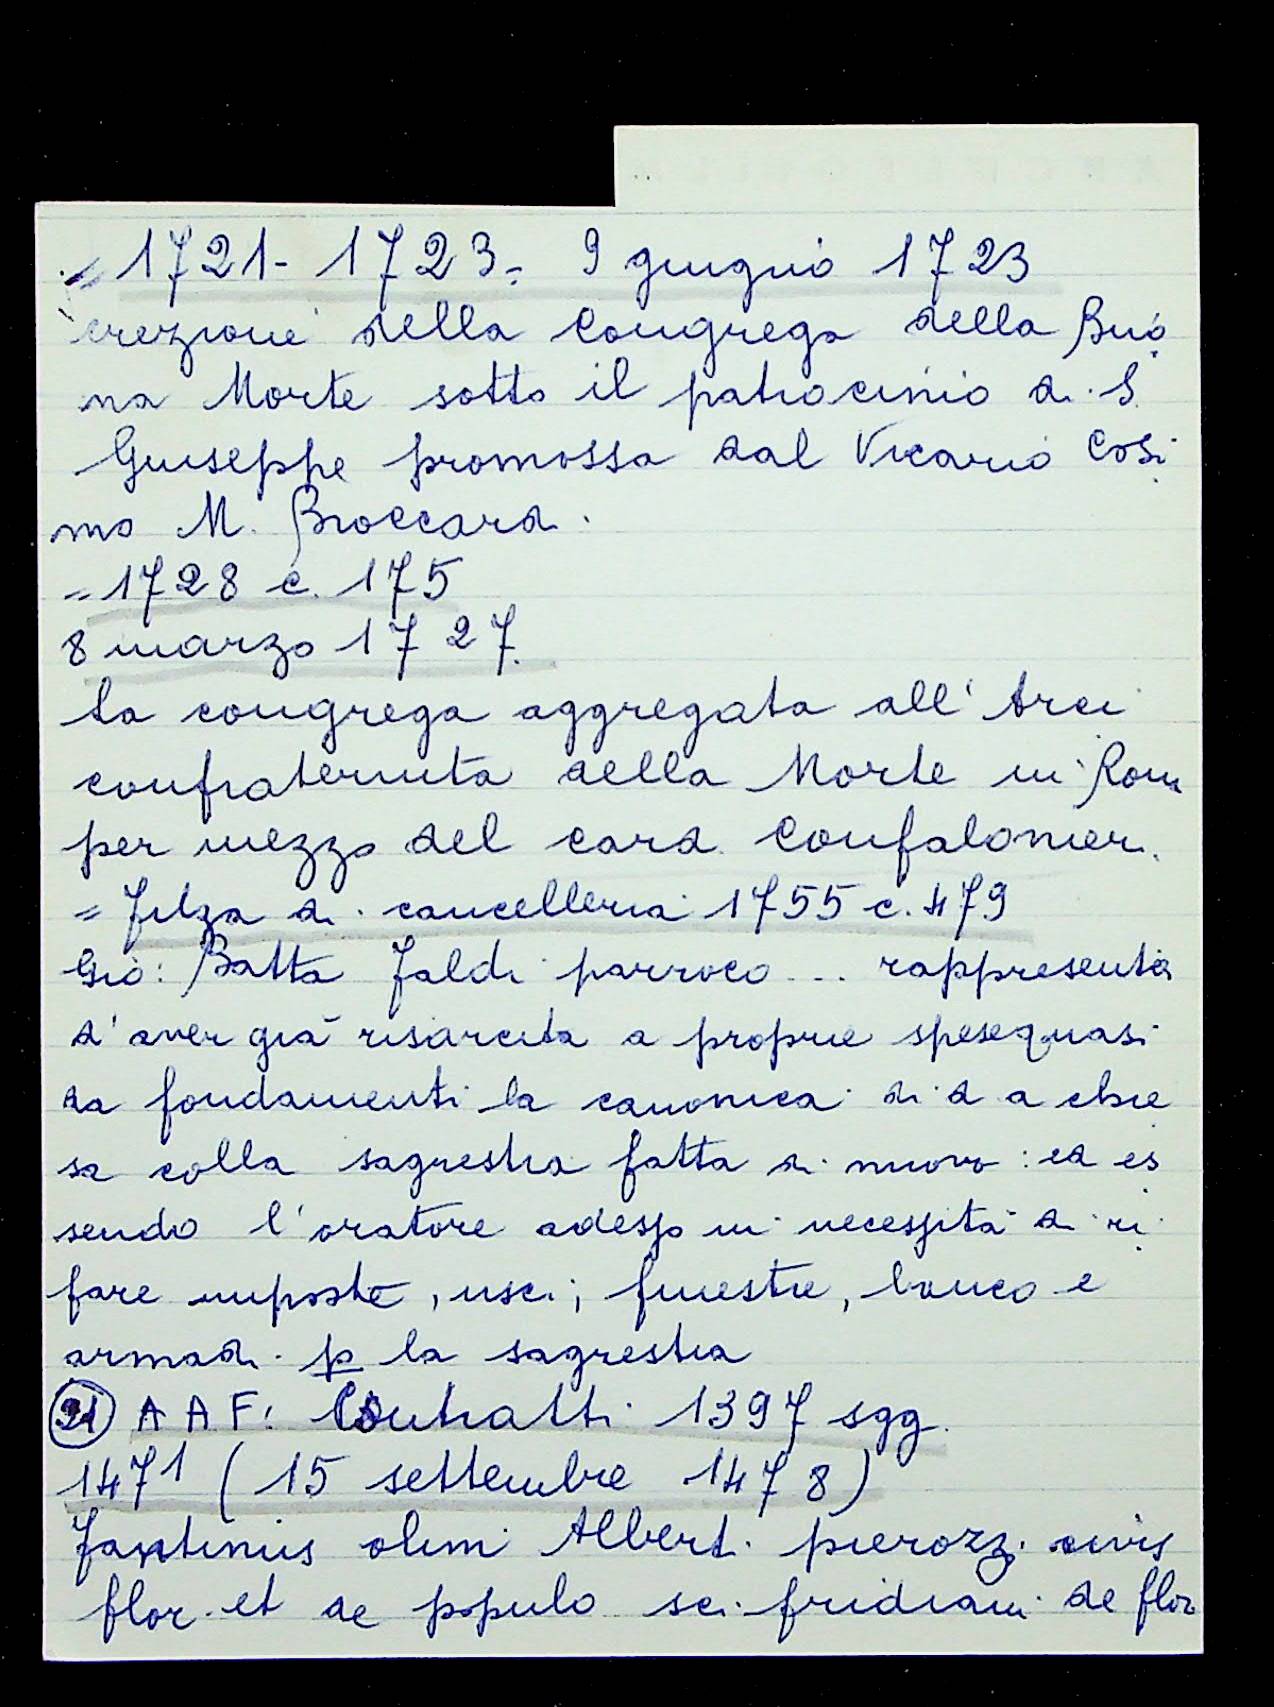 = 1721-1723 = 9 giugno 1723
erezione della Congrega della Buo
na Morte sotto il patrocinio di S.
Giuseppe promossa dal Vicario Cosi
mo M. Broccardi.
= 1728 c. 175
8 marzo 1727.
La congrega aggregata all'Arci
confraternita della Morte in Roma
per mezzo del card. Confalonieri.
= Filza di cancelleria 1755 c. 479
Gio: Batta Faldi parroco ... rappresenta
d'aver già risarcita a proprie spese quasi
da fondamenti la canonica di d a chie
sa colla sagrestia fatta di nuovo: ed es
sendo l'oratore adesso in necessità di ri
fare imposte, usci, finestre, banco e
armadi p la sagrestia
A A F: Contratti 1397 sgg.
1471 (15 settembre 1478)
Fantinus olim Alberti pierozzi civis
flor. et de populo sci. fridiani de flor